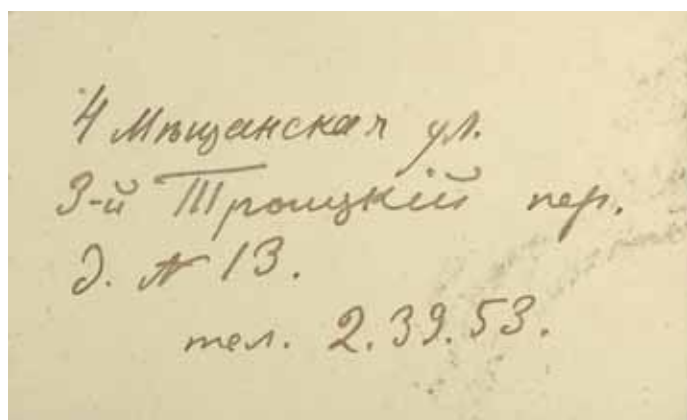 4 Мѣщанская ул.
3-й Троицкій пер.
д. № 13.
тел. 2.39.53.